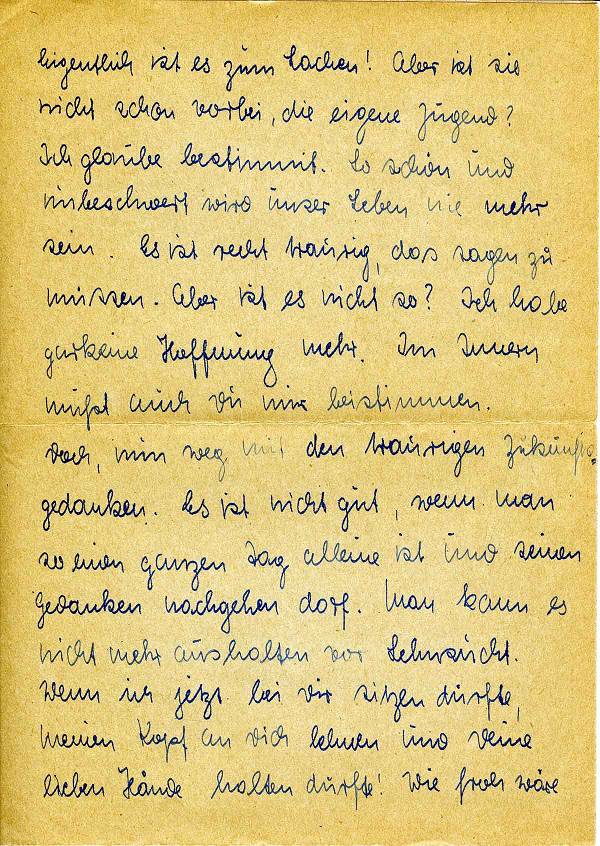 Eigentlich ist es zum Lachen! Aber ist sie
nicht schon vorbei, die eigene Jugend?
Ich glaube bestimmt. So schön und
unbeschwert wird unser Leben nie mehr
sein. Es ist recht traurig, das sagen zu
müssen. Aber ist es nicht so? Ich habe
garkeine Hoffnung mehr. Im Innern
mußt auch du mir beistimmen.
Doch, nun weg mit den traurigen Zukunfts-
gedanken. Es ist nicht gut, wenn man
so einen ganzen Tag alleine ist und seinen
Gedanken nachgehen darf. Man kann es
nicht mehr aushalten vor Sehnsucht.
Wenn ich jetzt bei dir sitzen dürfte,
meinen Kopf an dich lehnen und deine
lieben Hände halten dürfte! Wie froh wäre